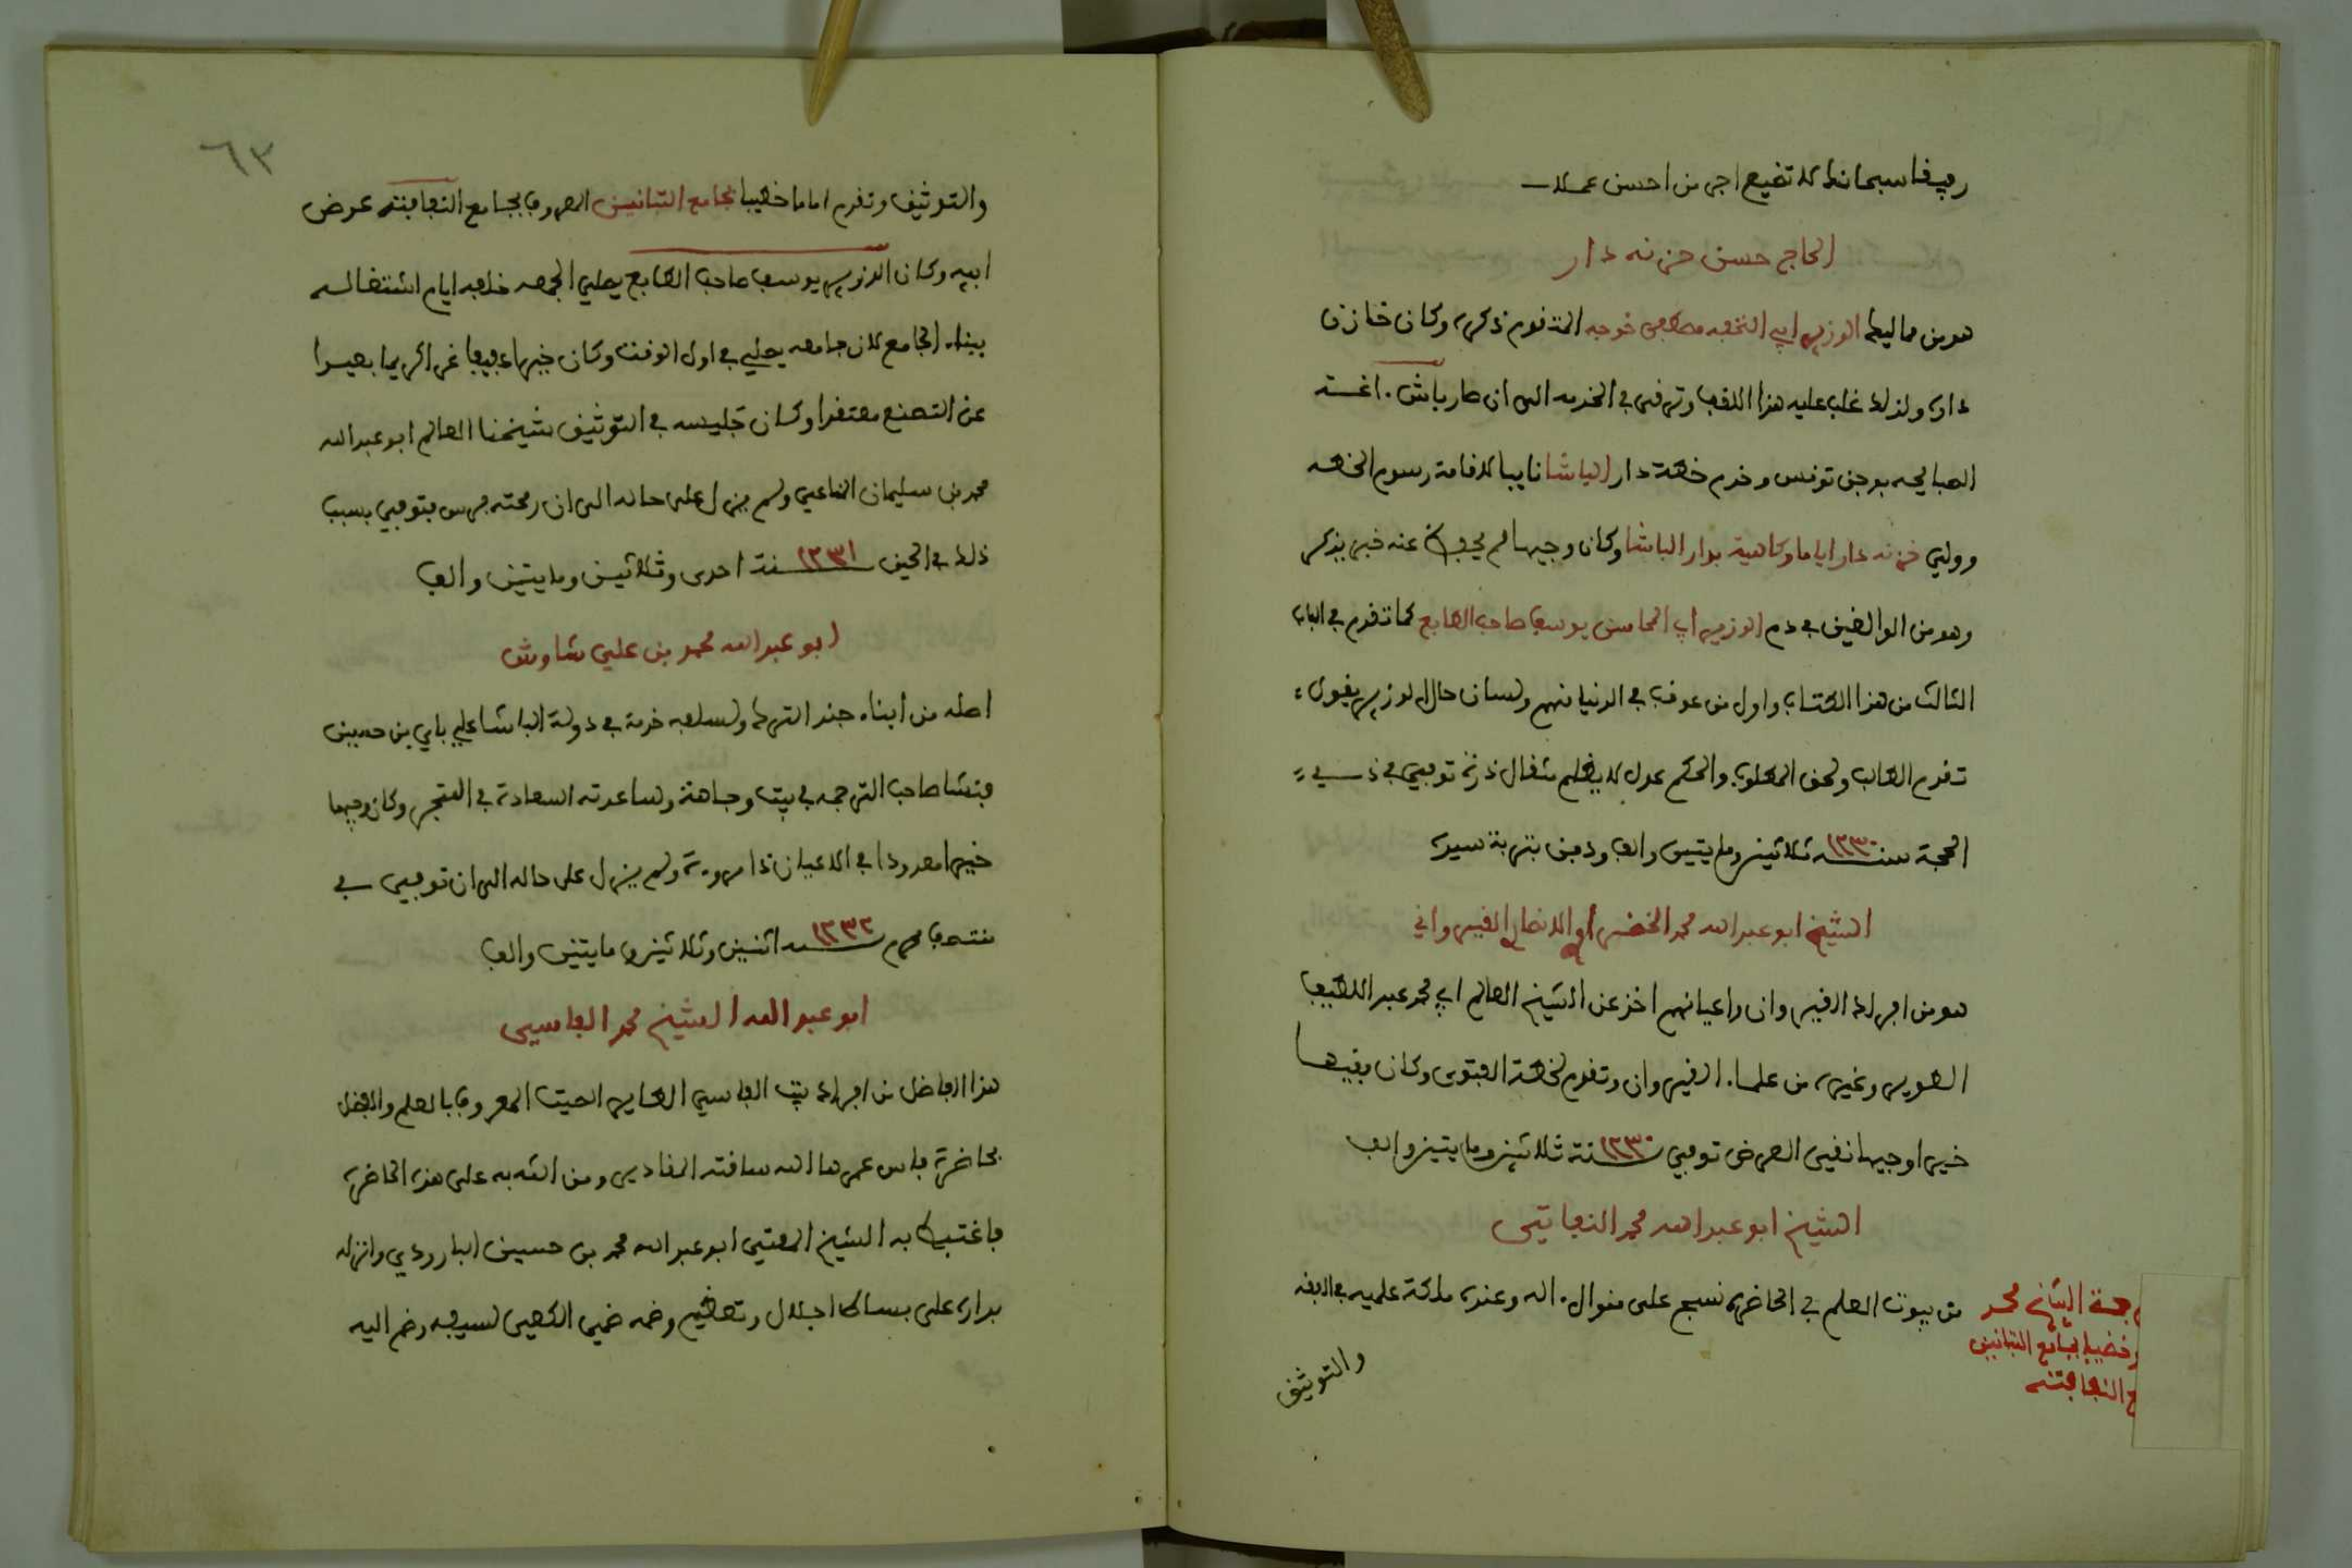 ربنا سبحانك لا تضيع اجر من احسن عملا
الحاج حسن خزنه دار
هو من مماليك الوزير ابي النخبه مصطفى خوجه المتقدم ذكره وكان خازن
داره ولذلك غلب عليه هذا اللقب وترقى في الخدمه الى ان صار باش اغـة
الصبايحيه بوجق تونس وخدم خطة دار الباشا نايبا لاقامة رسوم الخطه
وولي خزنه دار اياما وكاهية بدار الباشا وكان وجيها لم يحفظ عنه خبر يذكر
وهو من الوالغين في دم الوزير ابي المحاسن يوسف صاحب الطابع كما تقدم في الباب
الثالث من هذا الكتاب واول من عوقب في الدنيا منهم ولسان حال الوزير يقول
تقدم الطالب ولحق المطلوب والحكم عدل لا يظلم مثقال ذرة توفي في ذي
الحجة سنة ١٢٣٠ ثلاثين ومايتين والف ودفن بتربة سيده
الشيخ ابو عبد الله محمد الخضر ابو الانظار القيرواني
هو من افراد القيروان واعيانهم اخذ عن الشيخ العالم ابي محمد عبد اللطيف
الطوير وغيره من علماء القيروان وتقدم لخطة الفتوى وكان فقيها
خيرا وجيها نقي العرض توفي سنة ١٢٣٠ ثلاثين ومايتين والف
الشيخ ابو عبد الله محمد النفاتي
من بيوت العلم في الحاضره نسج على منوال اله وعنده ملكة علميه في الفقه
والتوثيق
جمة الشيخ محمد
وخطيبا بجامع التبانين
ع النفافتة
٦٣
والتوثيق وتقدم اماما خطيبا بجامع التبانين المعروف بجامع النفافتة عوض
ابيه وكان الوزير يوسف صاحب الطابع يصلي الجمعه خلفه ايام اشتغاله
ببناء الجامع لان جامعه يصلي في اول الوقت وكان خيرا عفيفا غرا كريما بعيدا
عن التصنع معتقدا وكان جليسه في التوثيق شيخنا العالم ابو عبد الله
محمد بن سليمان المناعي ولم يزل على حاله الى ان رمحته فرس فتوفي بسبب
ذلك في الحين سنة ١٢٣١ احدى وثلاثين ومايتين والف
ابو عبد الله محمد بن علي شاوش
اصله من ابناء جند الترك ولسلفه خدمة في دولة الباشا علي باي بن حسين
فنشا صاحب الترجمه في بيت وجاهة وساعدته السعادة في المتجر وكان وجيها
خيرا معدودا في الاعيان ذا مروءة ولم يزل على حاله الى ان توفي في
منتصف محرم سنة ١٢٣٢ اثنين وثلاثين ومايتين والف
ابو عبد الله الشيخ محمد الفاسي
هذا الفاضل من افراد بيت الفاسي الطاير الصيت المعروف بالعلم والفضل
بحاضرة فاس عمرها الله ساقته المقادير ومن الله به على هذه الحاضره
فاغتبط به الشيخ المفتي ابو عبد الله محمد بن حسين البارودي وانزله
بداره على بساط اجلال وتعظيم وضمه ضمي الكمي لسيفه وضم اليه